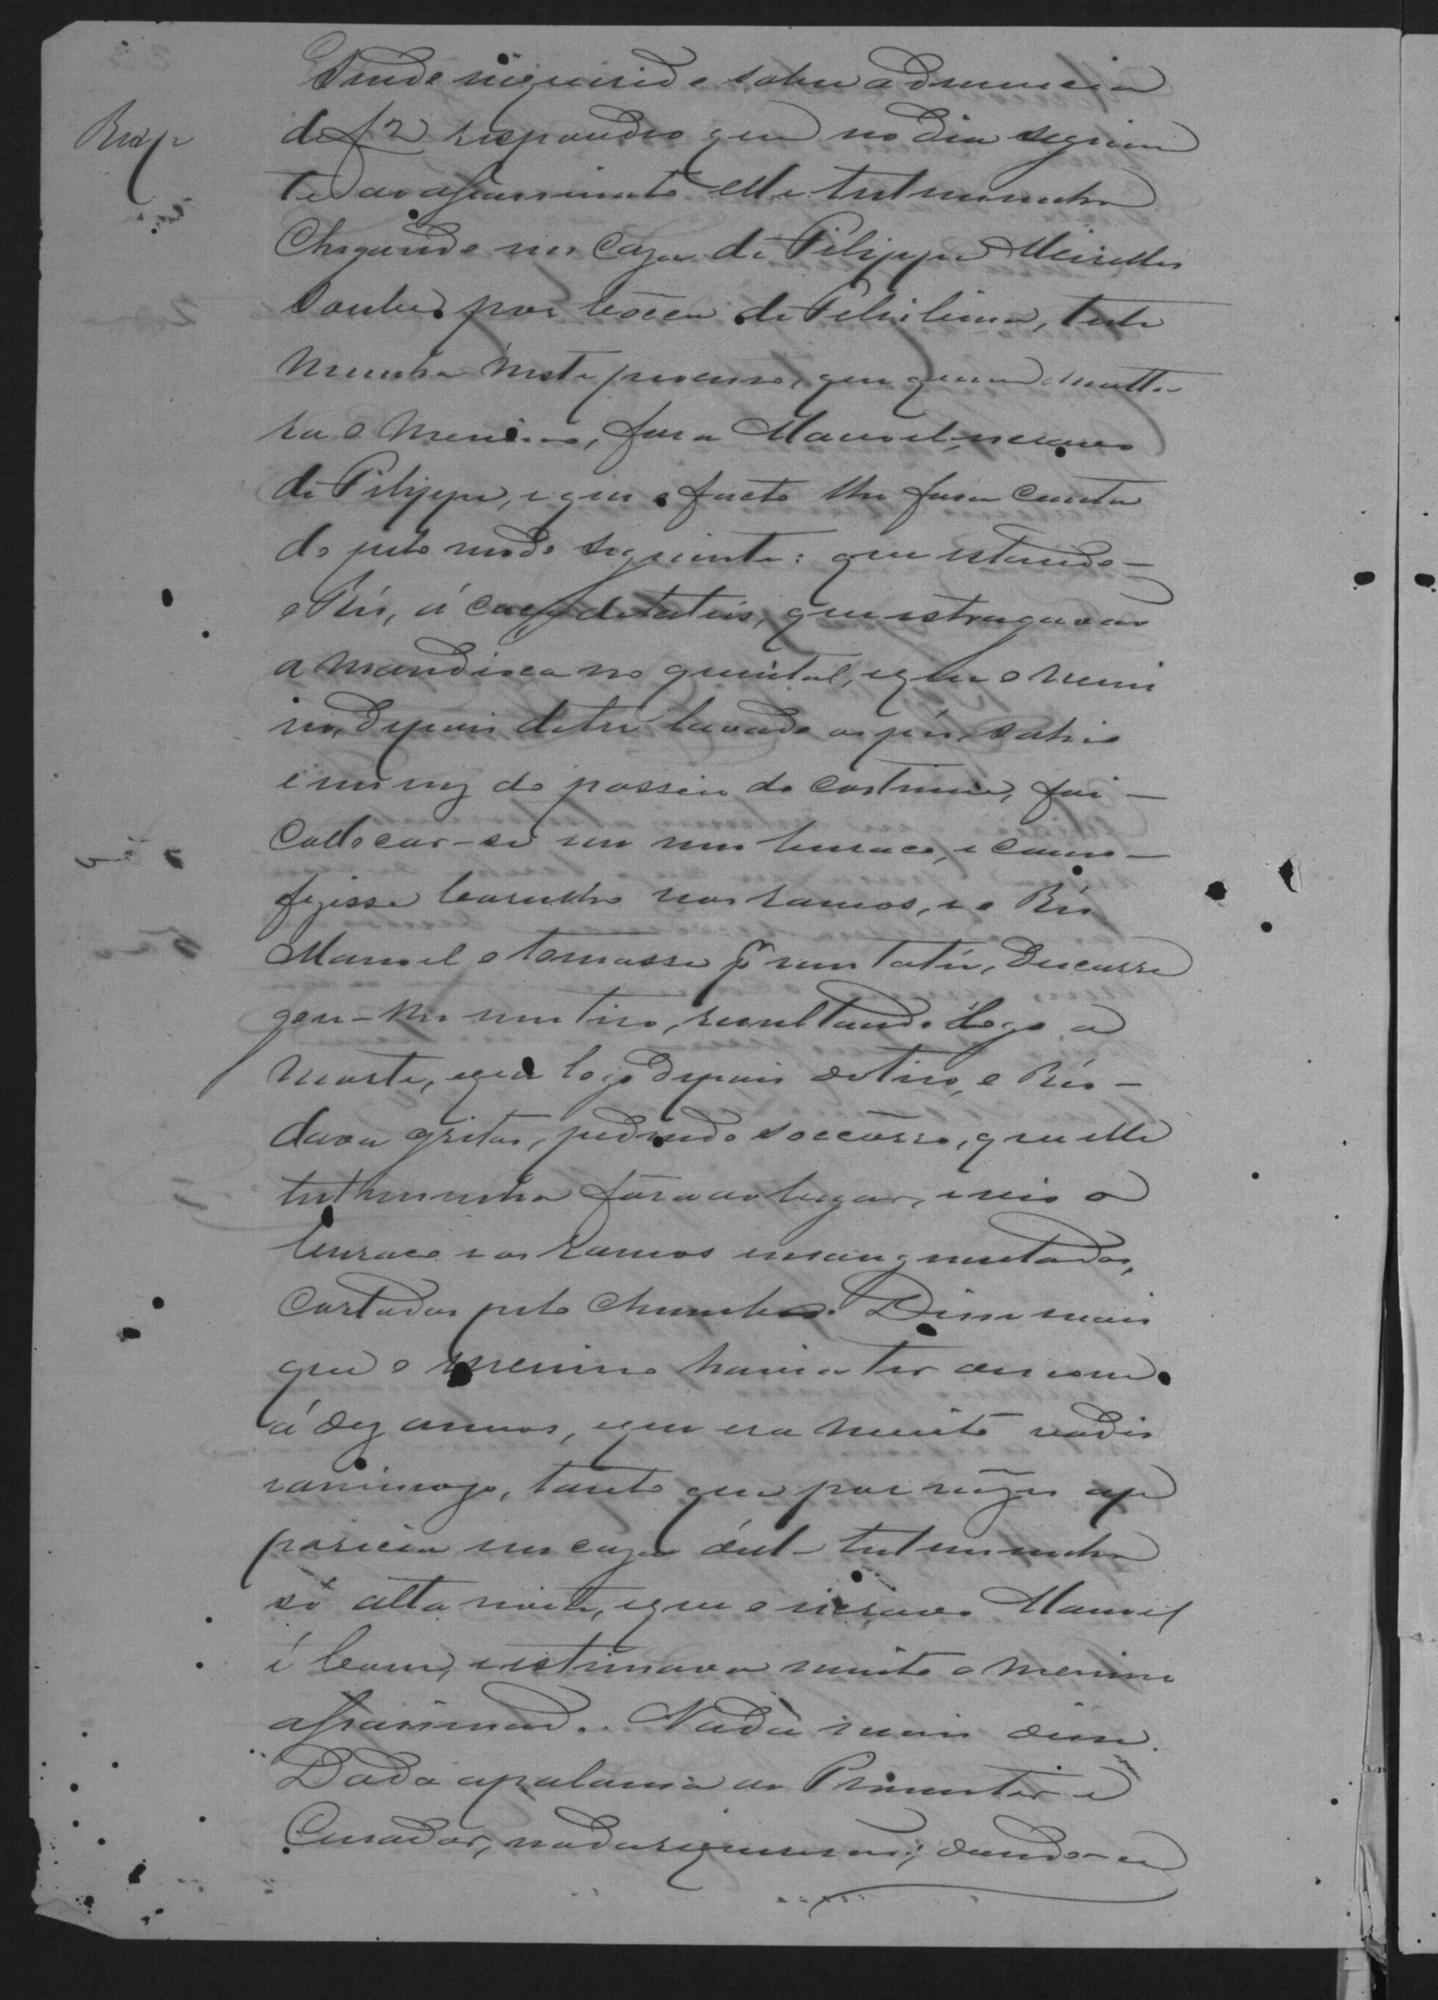 Sendo inquirido sobre a denuncia
Resp
de f 2 respondeo que no dia seguin
te ao assassinato elle testemunha
Chegando em caza de Felippe Meirelles
soube por bocca de Felisbina, teste
munha neste processo, que quem matta-
ra o menino, fora Manoel, escravo
de Felippe, e que o facto lhe fora conta
do pelo modo seguinte: que estando-
o Réo, á caça de tatús, que estragavão
a mandioca no quintal, e que o meni
no, depois de ter lavado os pés, sahio
e em vez do passeio do costume, foi-
collocar-se em um buraco, e como-
fizesse barulho nos ramos, e o Réo
Manoel o tomasse pr. um tatú, descarre
gou-lhe um tiro, resultando logo a
morte, e que logo depois do tiro, o Réo-
dava gritos, pedindo soccorro, que elle
testemunha fora ao lugar, e vio o
buraco e os ramos ensanguentados,
cortados pelo chumbo. Disse mais
que o menino havia ter de nove
á dez annos, e que era muito vadio
tanto que por vezes ap
parecia em caza del testemunha
só alta noite, e que o escravo Manoel
é bom, e estimava muito o menino
assassinado. Nada mais disse.
Dada a palavra ao Promotor e
Curador, nada requererão; dando-se